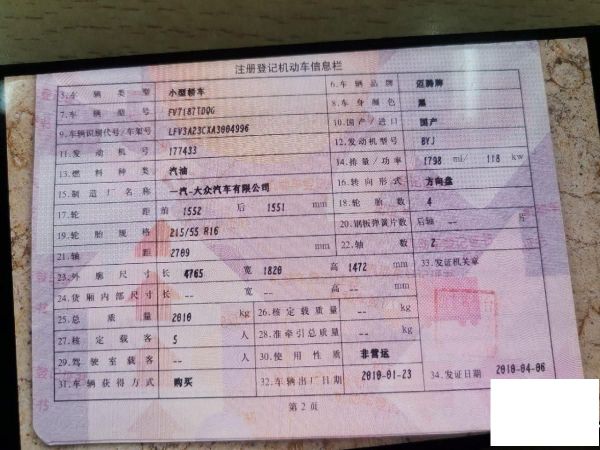 注册登记机动车信息栏
5.车辆类型 小型轿车 6.车辆品牌 迈腾牌
7.车辆型号 FV7187TDQG 8.车身颜色 黑
9.车辆识别代号/车架号 LFV3A23CXA3004996 10.国产/进口 国产
11.发动机号 177433 12.发动机型号 BYJ
13.燃料种类 汽油 14.排量/功率 1798 ml/ 118 kw
15.制造厂名称 一汽-大众汽车有限公司 16.转向形式 方向盘
17.轮距 前 1552 后 1551 mm 18.轮胎数 4
19.轮胎规格 215/55 R16 20.钢板弹簧片数 后轴 -- 片
21.轴距 2709 mm 22.轴数 2
23.外廓尺寸 长 4765 宽 1820 高 1472 mm 33.发证机关章
24.货厢内部尺寸 长 -- 宽 -- 高 -- mm
25.总质量 2010 kg 26.核定载质量 -- kg
27.核定载客 5 人 28.准牵引总质量 -- kg
29.驾驶室载客 -- 人 30.使用性质 非营运
31.车辆获得方式 购买 32.车辆出厂日期 2010-01-23 34.发证日期 2010-04-06
第2页